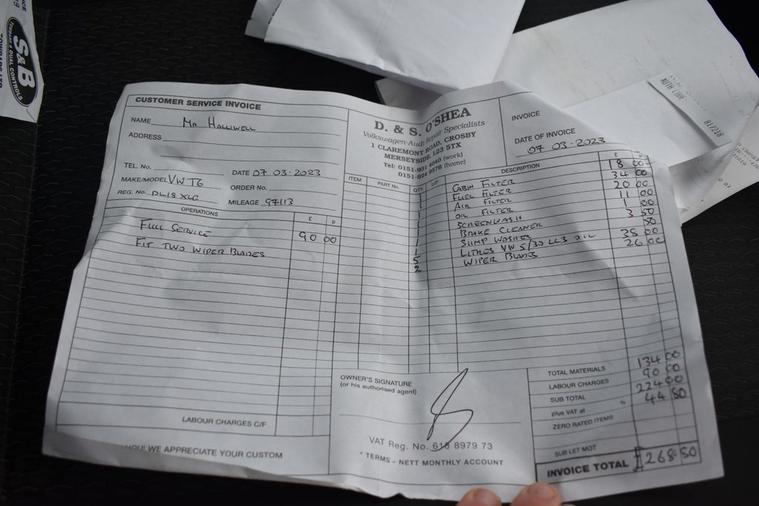 S&B
CUSTOMER SERVICE INVOICE
NAME Mr HALLIWELL
ADDRESS
TEL. No.
DATE 07 03-2023
MAKE/MODEL VW T6
ORDER No.
REG. NO. DL18 XLC
MILEAGE 97113
D. & S. O'SHEA
Volkswagen Audi Repair Specialists
1 CLAREMONT ROAD, CROSBY
MERSEYSIDE, L23 5TX
(work)
(home)
INVOICE
DATE OF INVOICE
07 03-2023
OPERATIONS £ P
FULL SERVICE 90 00
FIT TWO WIPER BLADES
ITEM PART No. QTY DESCRIPTION
1 CABIN FILTER 18 00
1 FUEL FILTER 34 00
1 AIR FILTER 20 00
1 OIL FILTER 11 00
SCREENWASH 1 00
1 BRAKE CLEANER 3 50
1 SUMP WASHER 50
5 LITRES VW 5/30 LL3 OIL 35 00
2 WIPER BLADES 26 00
LABOUR CHARGES C/F
OWNER'S SIGNATURE
(or his authorised agent)
VAT Reg. No. 618 8979 73
* TERMS - NETT MONTHLY ACCOUNT
WE APPRECIATE YOUR CUSTOM
TOTAL MATERIALS 134 00
LABOUR CHARGES 90 00
SUB TOTAL 224 00
plus VAT at % 44 80
ZERO RATED ITEMS
SUB LET MOT
INVOICE TOTAL £268 80